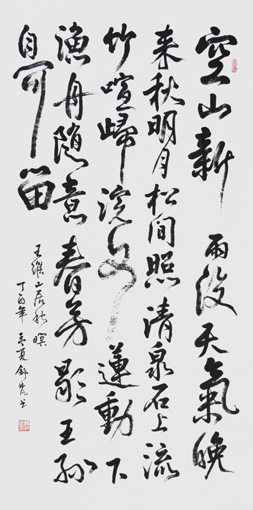 空山新雨後天氣晚
来秋明月松間照清泉石上流
竹喧歸浣女蓮動下
漁舟随意春芳歇王孫
自可留
王維山居秋暝
丁酉年孟夏舒书